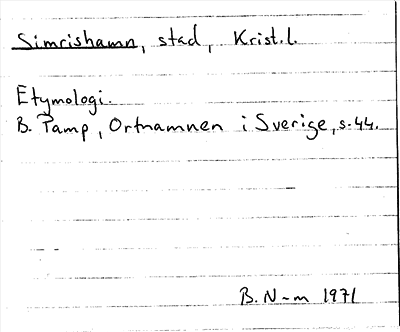 Simrishamn, stad, Krist.l.
Etymologi.
B. Pamp, Ortnamnen i Sverige, s. 44.
B. N-m 1971